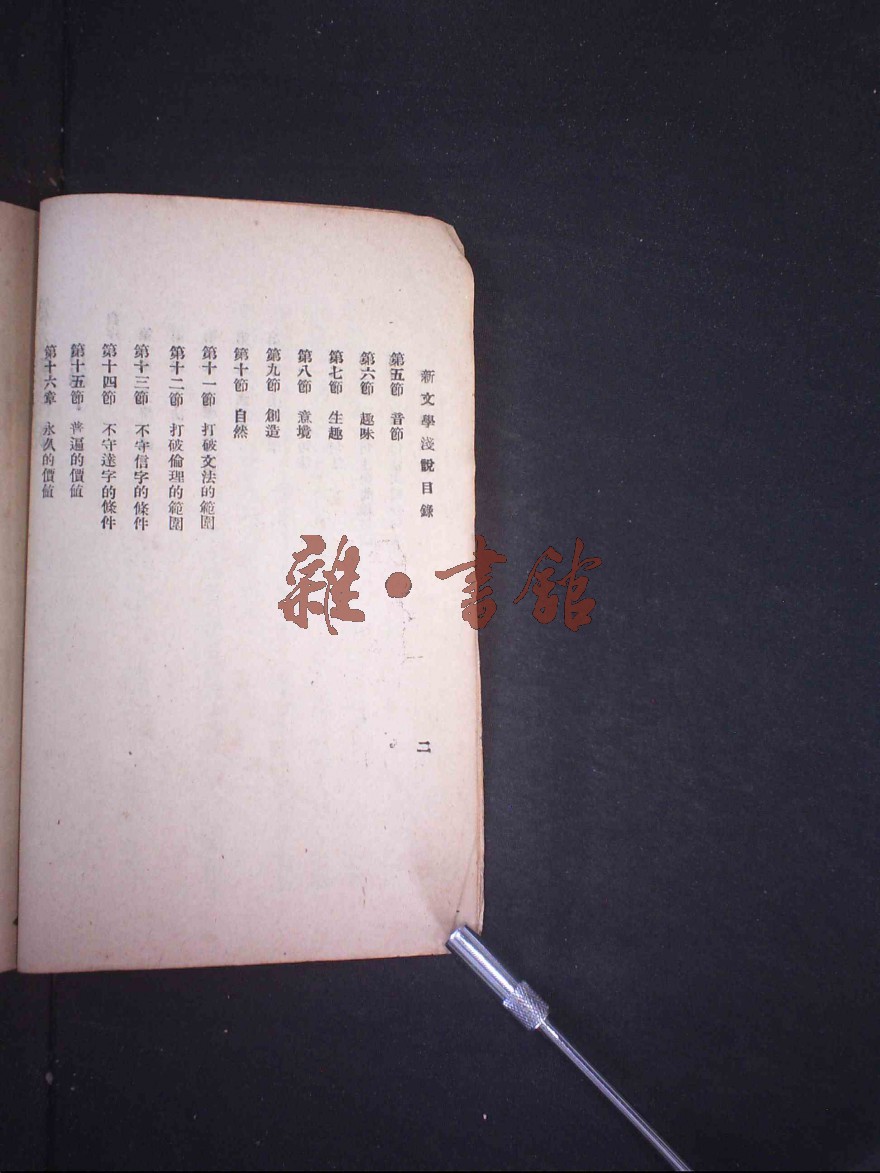 新文學淺說目錄
二
第五節 音節
第六節 趣味
第七節 生趣
第八節 意境
第九節 創造
第十節 自然
第十一節 打破文法的範圍
第十二節 打破倫理的範圍
第十三節 不守信字的條件
第十四節 不守達字的條件
第十五節 普遍的價值
第十六章 永久的價值
雜·書館